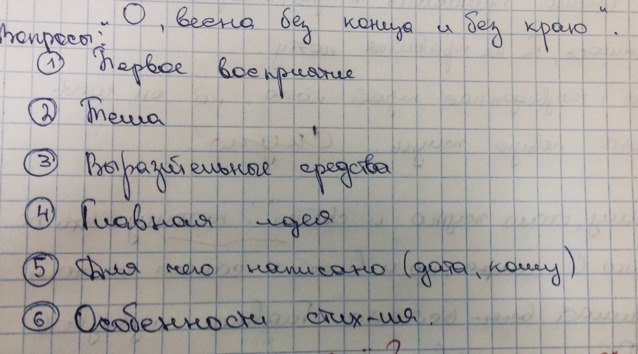 "О, весна без конца и без краю".
Вопросы:
① Первое восприятие
② Тема
③ Выразительные средства
④ Главная идея
⑤ Для чего написано (дата, кому)
⑥ Особенности стих-ия.
?